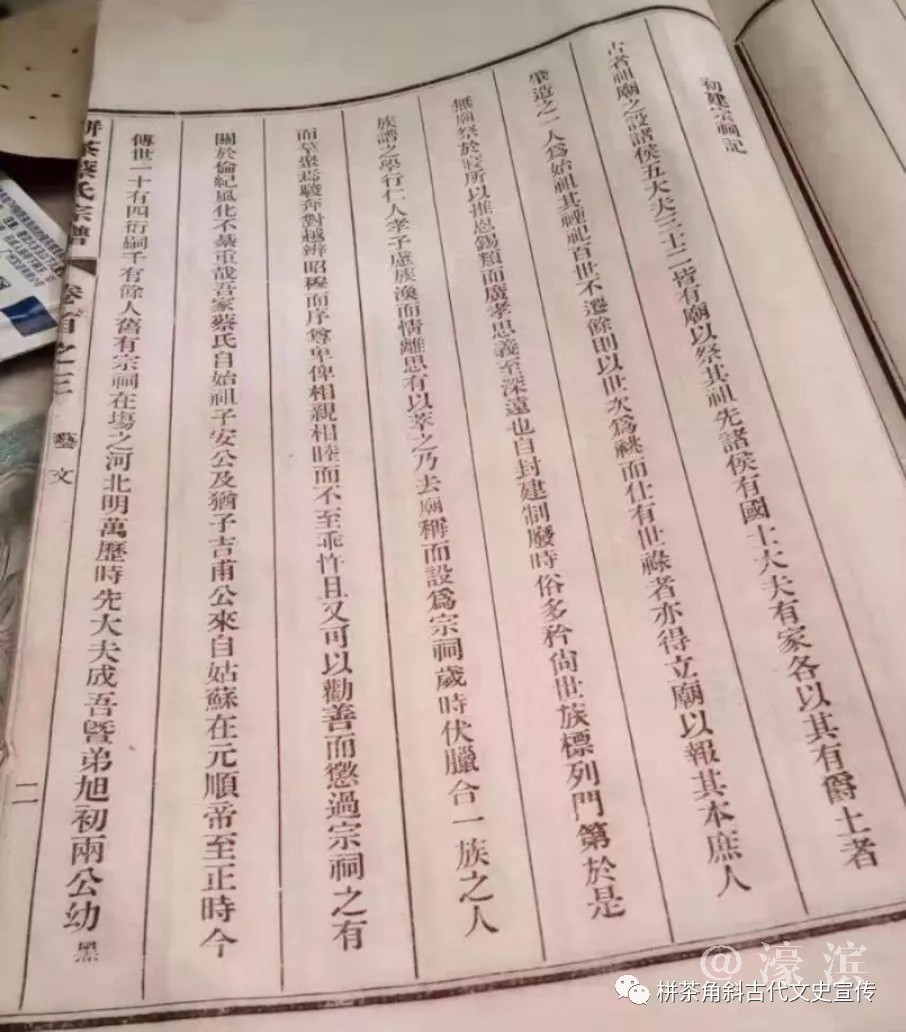 初建宗祠記
古者祖廟之設諸侯五大夫三士二皆有廟以祭其祖先諸侯有國士大夫有家各以其有爵土者
肇造之一人為始祖其禋祀百世不遷餘則以世次為祧而仕有世祿者亦得立廟以報其本庶人
無廟祭於寢所以推恩錫類而廣孝思義至深遠也自封建制廢時俗多矜尙世族標列門第於是
族譜之學行仁人孝子慮族渙而情離思有以萃之乃去廟稱而設為宗祠歲時伏臘合一族之人
而萃聚焉駿奔對越辨昭穆而序尊卑俾相親相睦而不至乖忤且又可以勸善而懲過宗祠之有
關於倫紀風化不綦重哉吾家蔡氏自始祖子安公及猶子吉甫公來自姑蘇在元順帝至正時今
傳世一十有四衍嗣千有餘人舊有宗祠在塲之河北明萬歷時先大夫成吾暨弟旭初兩公幼
栟茶蔡氏宗譜 卷首之三 藝文 二
@濠滨
栟茶角斜古代文史宣传